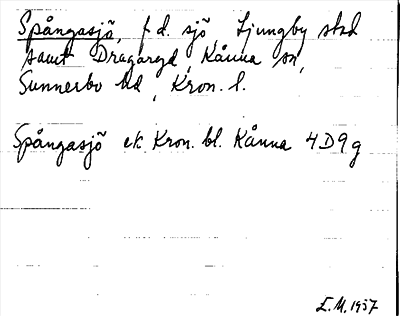 Spångasjö, f.d. sjö, Ljungby stad
samt Dragaryd, Kånna sn,
Sunnerbo hd, Kron. l.
Spångasjö ek Kron. bl. Kånna 4D9g
E.M. 1957